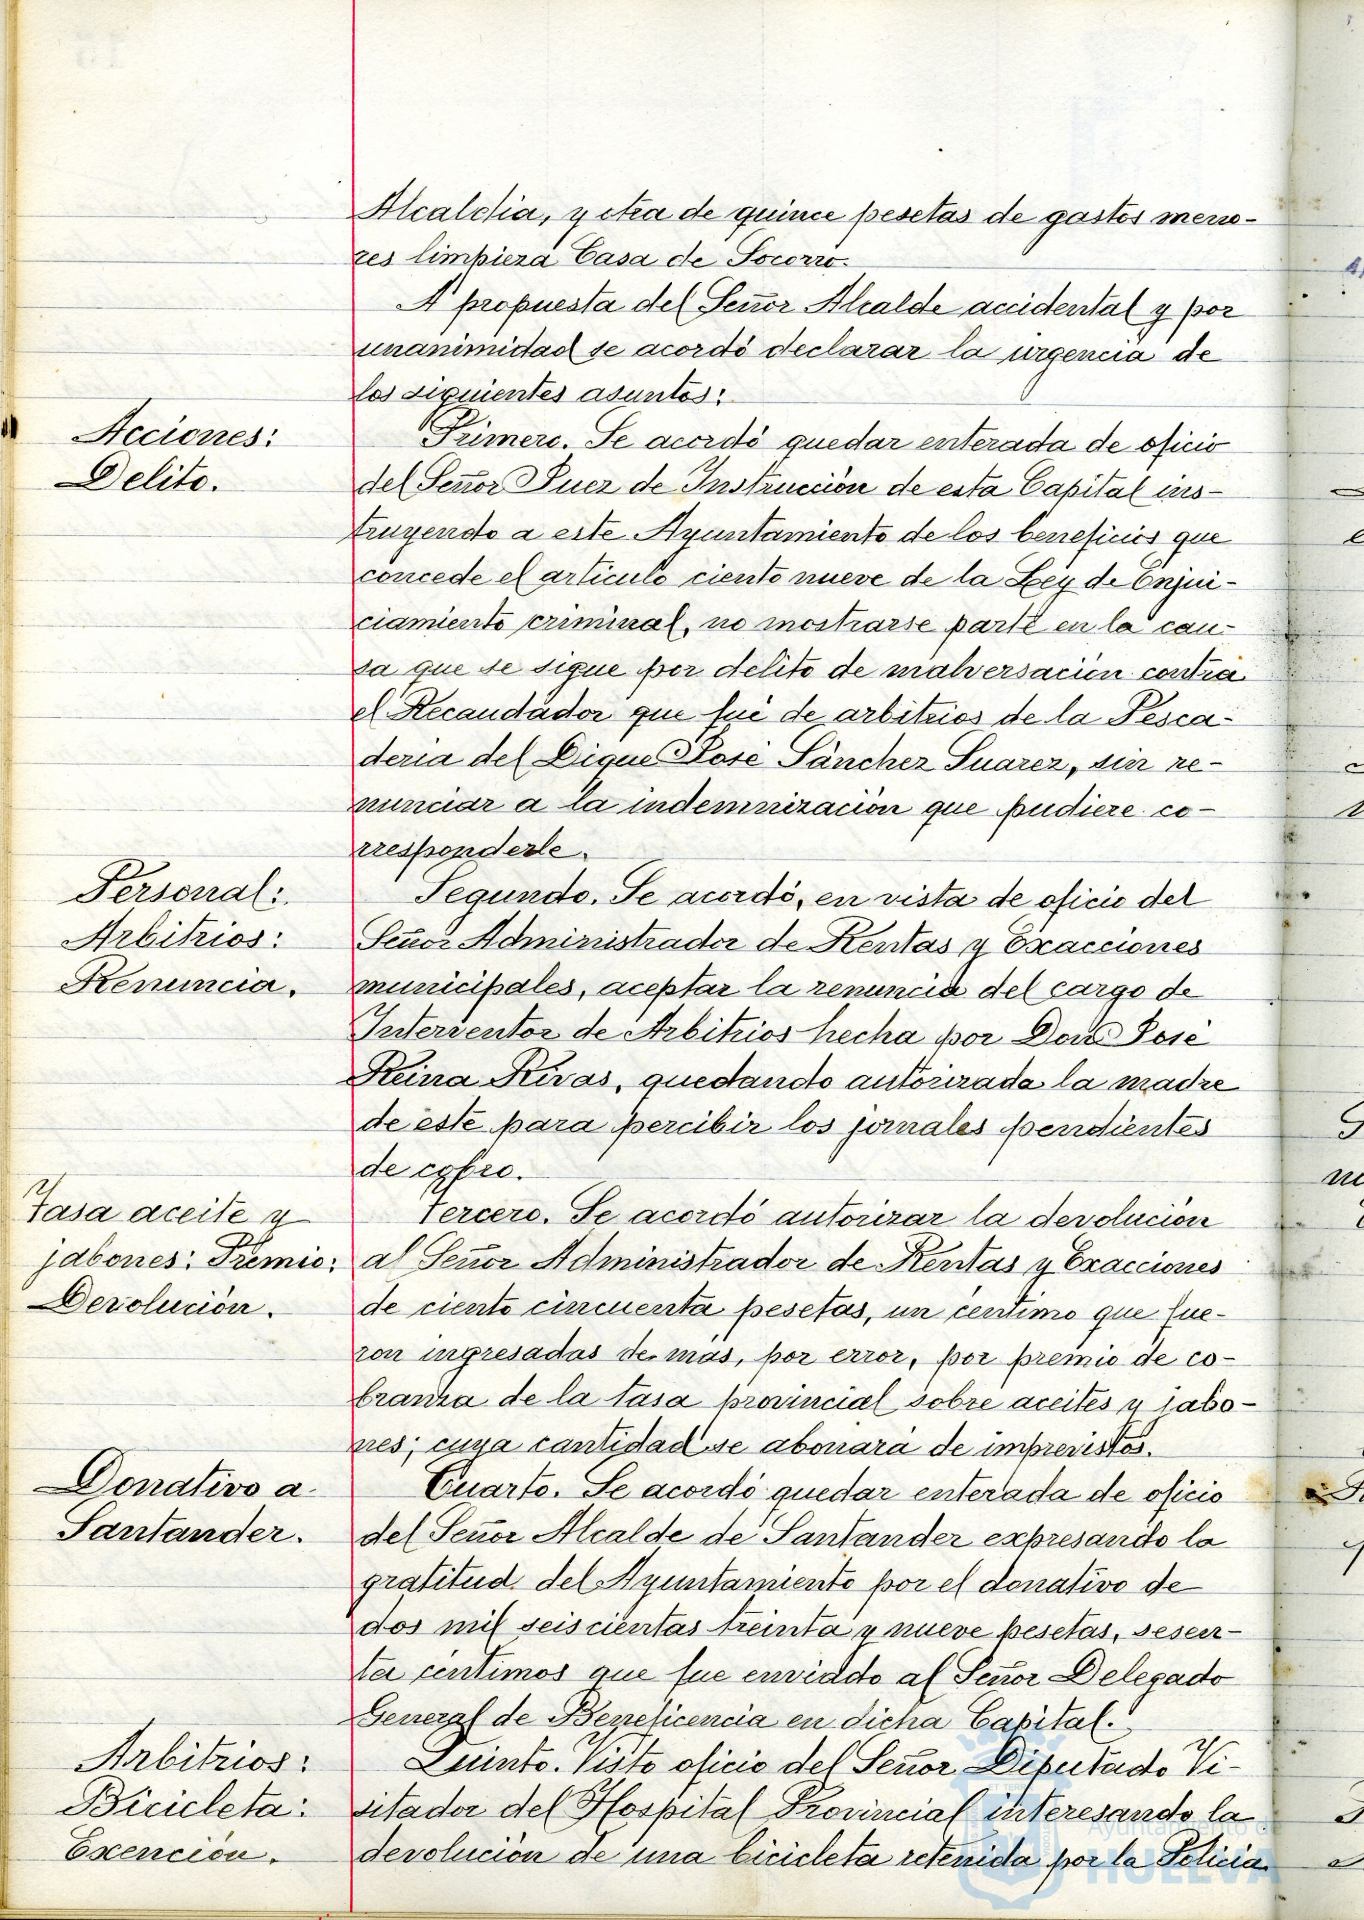 Alcaldia, y otra de quince pesetas de gastos meno-
res limpieza Casa de Socorro.
A propuesta del Señor Alcalde accidental y por
unanimidad se acordó declarar la urgencia de
los siguientes asuntos:
Acciones:
Delito.
Primero. Se acordó quedar enterada de oficio
del Señor Juez de Instrucción de esta Capital ins-
truyendo a este Ayuntamiento de los beneficios que
concede el artículo ciento nueve de la Ley de Enjui-
ciamiento criminal, no mostrarse parte en la cau-
sa que se sigue por delito de malversación contra
el Recaudador que fué de arbitrios de la Pesca-
deria del Dique José Sánchez Suarez, sin re-
nunciar a la indemnización que pudiere co-
rresponderle.
Personal:
Arbitrios:
Renuncia.
Segundo. Se acordó, en vista de oficio del
Señor Administrador de Rentas y Exacciones
municipales, aceptar la renuncia del cargo de
Interventor de Arbitrios hecha por Don José
Reina Rivas, quedando autorizada la madre
de éste para percibir los jornales pendientes
de cobro.
Tasa aceite y
jabones: Premio:
Devolución.
Tercero. Se acordó autorizar la devolución
al Señor Administrador de Rentas y Exacciones
de ciento cincuenta pesetas, un centimo que fue-
ron ingresadas de mas, por error, por premio de co-
branza de la tasa provincial sobre aceites y jabo-
nes; cuya cantidad se abonará de imprevistos.
Donativo a
Santander.
Cuarto. Se acordó quedar enterada de oficio
del Señor Alcalde de Santander expresando la
gratitud del Ayuntamiento por el donativo de
dos mil seiscientas treinta y nueve pesetas, sesen-
ta centimos que fue enviado al Señor Delegado
General de Beneficencia en dicha Capital.
Arbitrios:
Bicicleta:
Exención.
Quinto. Visto oficio del Señor Diputado Vi-
sitador del Hospital Provincial interesando la
devolución de una bicicleta retenida por la Policia
Ayuntamiento de
HUELVA